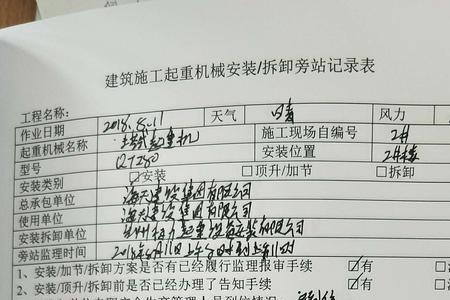 建筑施工起重机械安装/拆卸旁站记录表
工程名称: 天气 晴 风力
作业日期 2018.8.11 施工现场自编号 2#
起重机械名称 塔式起重机 安装位置 2#楼
型号 QTZ80
安装类别 □安装 □顶升/加节 □拆卸
总承包单位 海天建设集团有限公司
使用单位 海天建设集团有限公司
安装拆卸单位 起重设备安装有限公司
旁站监理时间 2018年8月11日上午8时到上午11时
1、安装/加节/拆卸方案是否有已经履行监理报审手续 ☑有
1、安装/顶升/拆卸前是否已经办理了告知手续 ☑有